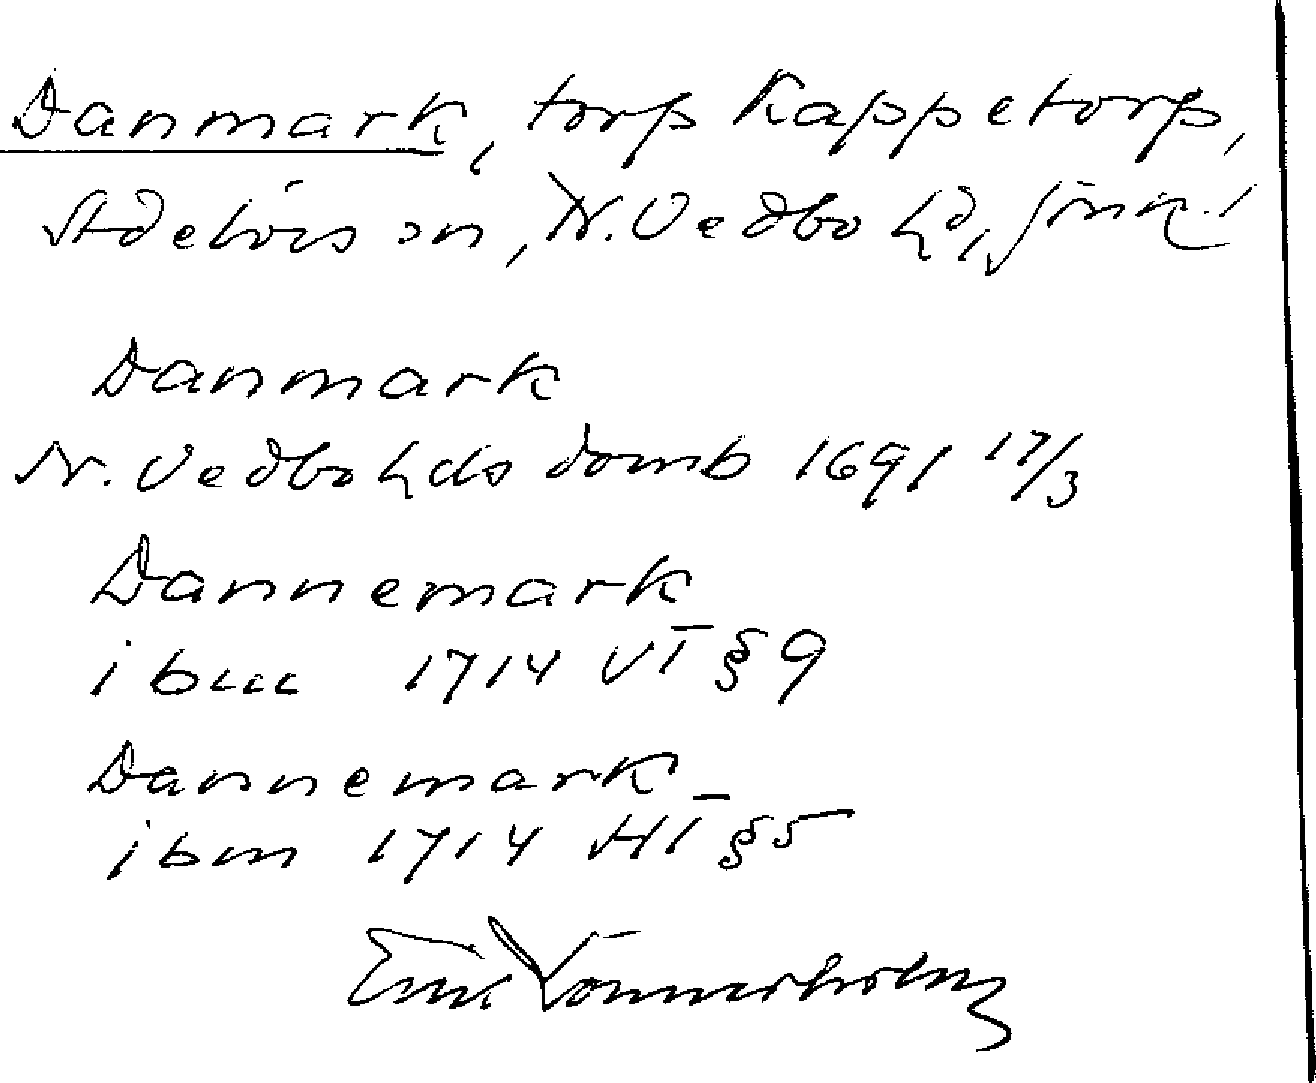 Danmark, torp Kappetorp,
Adelövs sn, N. Vedbo hd, Jönk.
Danmark
N. Vedbo hds domb 1691 17/3
Dannemark
ibm 1714 VT § 9
Dannemark
ibm 1714 HT § 5